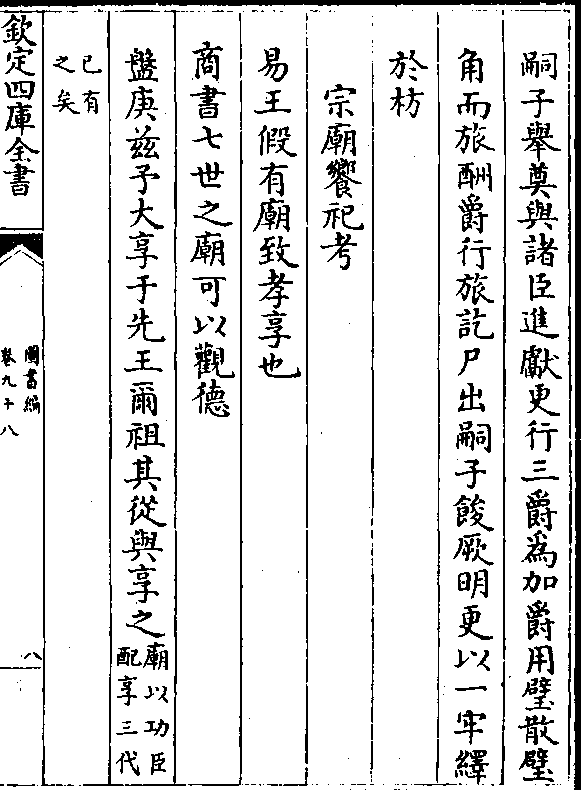 嗣子舉奠與諸臣進獻更行三爵為加爵用璧散璧
角而旅酬爵行旅訖尸出嗣子餕厥明更以一牢繹
於枋
宗廟饗祀考
易王假有廟致孝享也
商書七世之廟可以觀德
盤庚兹予大享于先王爾祖其從與享之廟以功臣
配享三代
已有
之矣
欽定四庫全書
圖書編
卷九十八
八